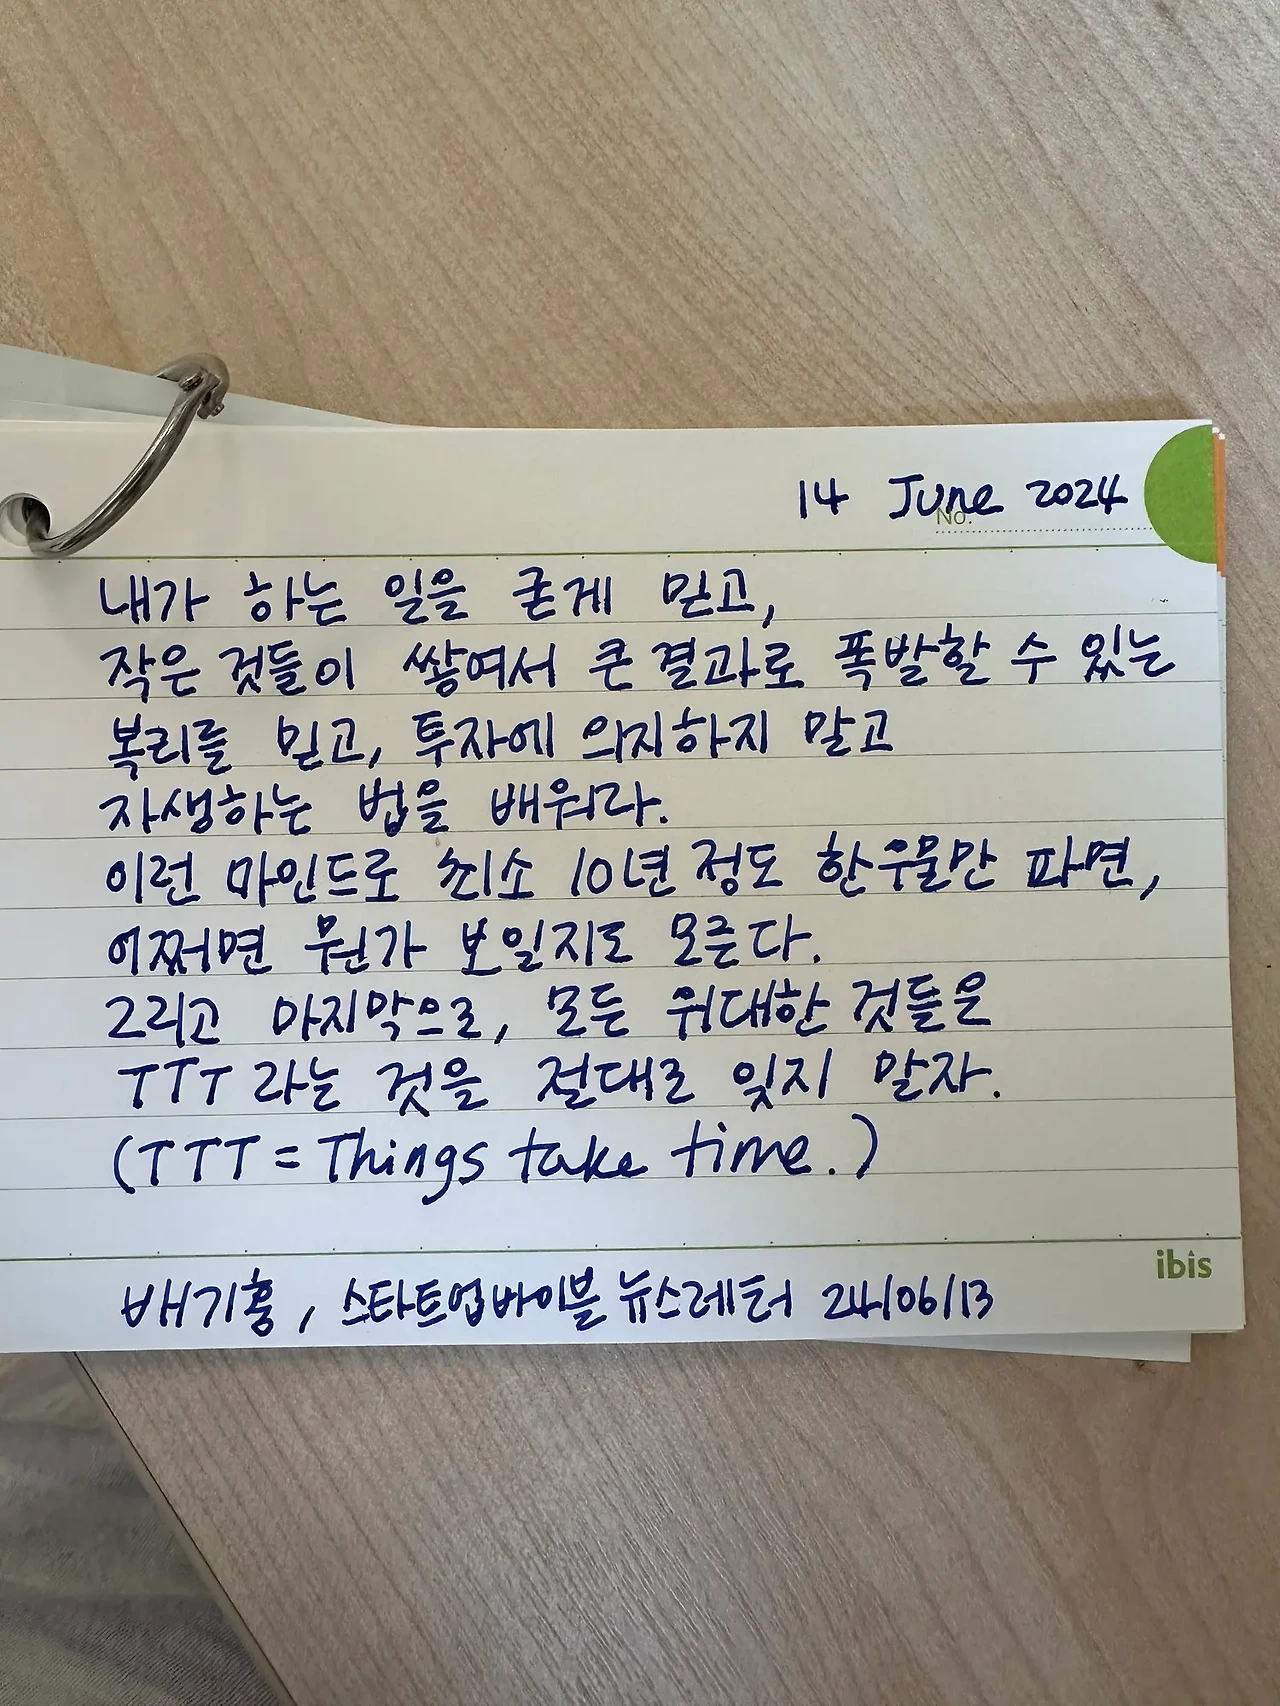 14 June 2024
No.
내가 하는 일을 굳게 믿고,
작은 것들이 쌓여서 큰 결과로 폭발할 수 있는
복리를 믿고, 투자에 의지하지 말고
자생하는 법을 배워라.
이런 마인드로 최소 10년 정도 한우물만 파면,
어쩌면 뭔가 보일지도 모른다.
그리고 마지막으로, 모든 위대한 것들은
TTT라는 것을 절대로 잊지 말자.
(TTT = Things take time.)
ibis
배기홍, 스타트업바이블 뉴스레터 24/06/13